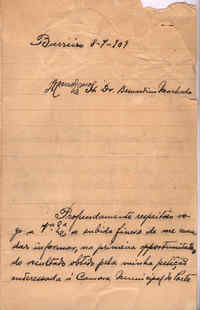 Barreiro 8-7-909
Exmo Sr. Dr. Bernardino Machado
Profundamente respeitoso ro-
go a V. Exa a subida fineza de me man-
dar informar, na primeira opportunidade,
do resultado obtido pela minha petição
interessada à Camara Municipal do Porto